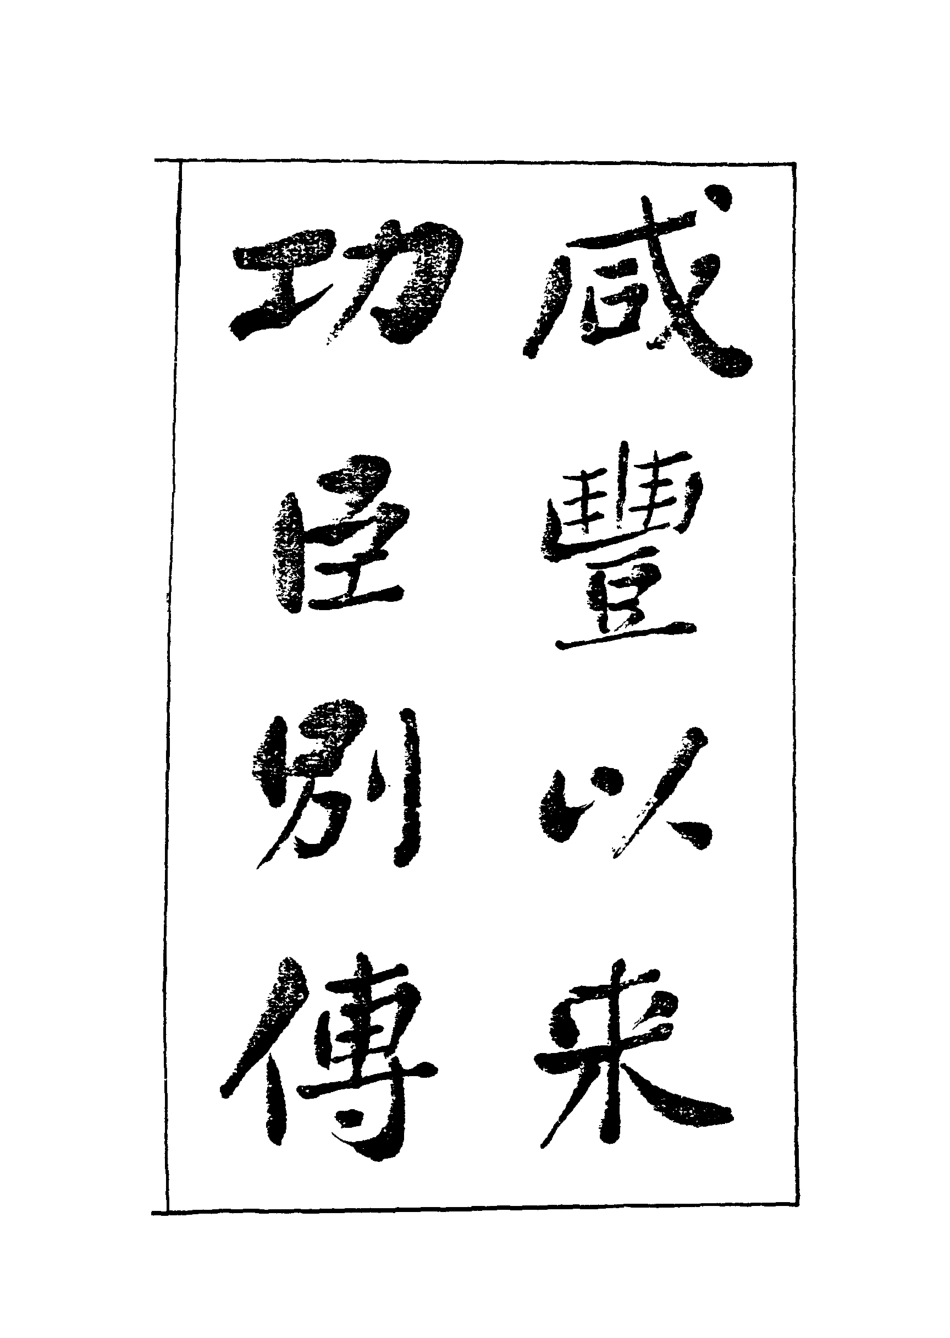 咸豐以来
功臣别傳